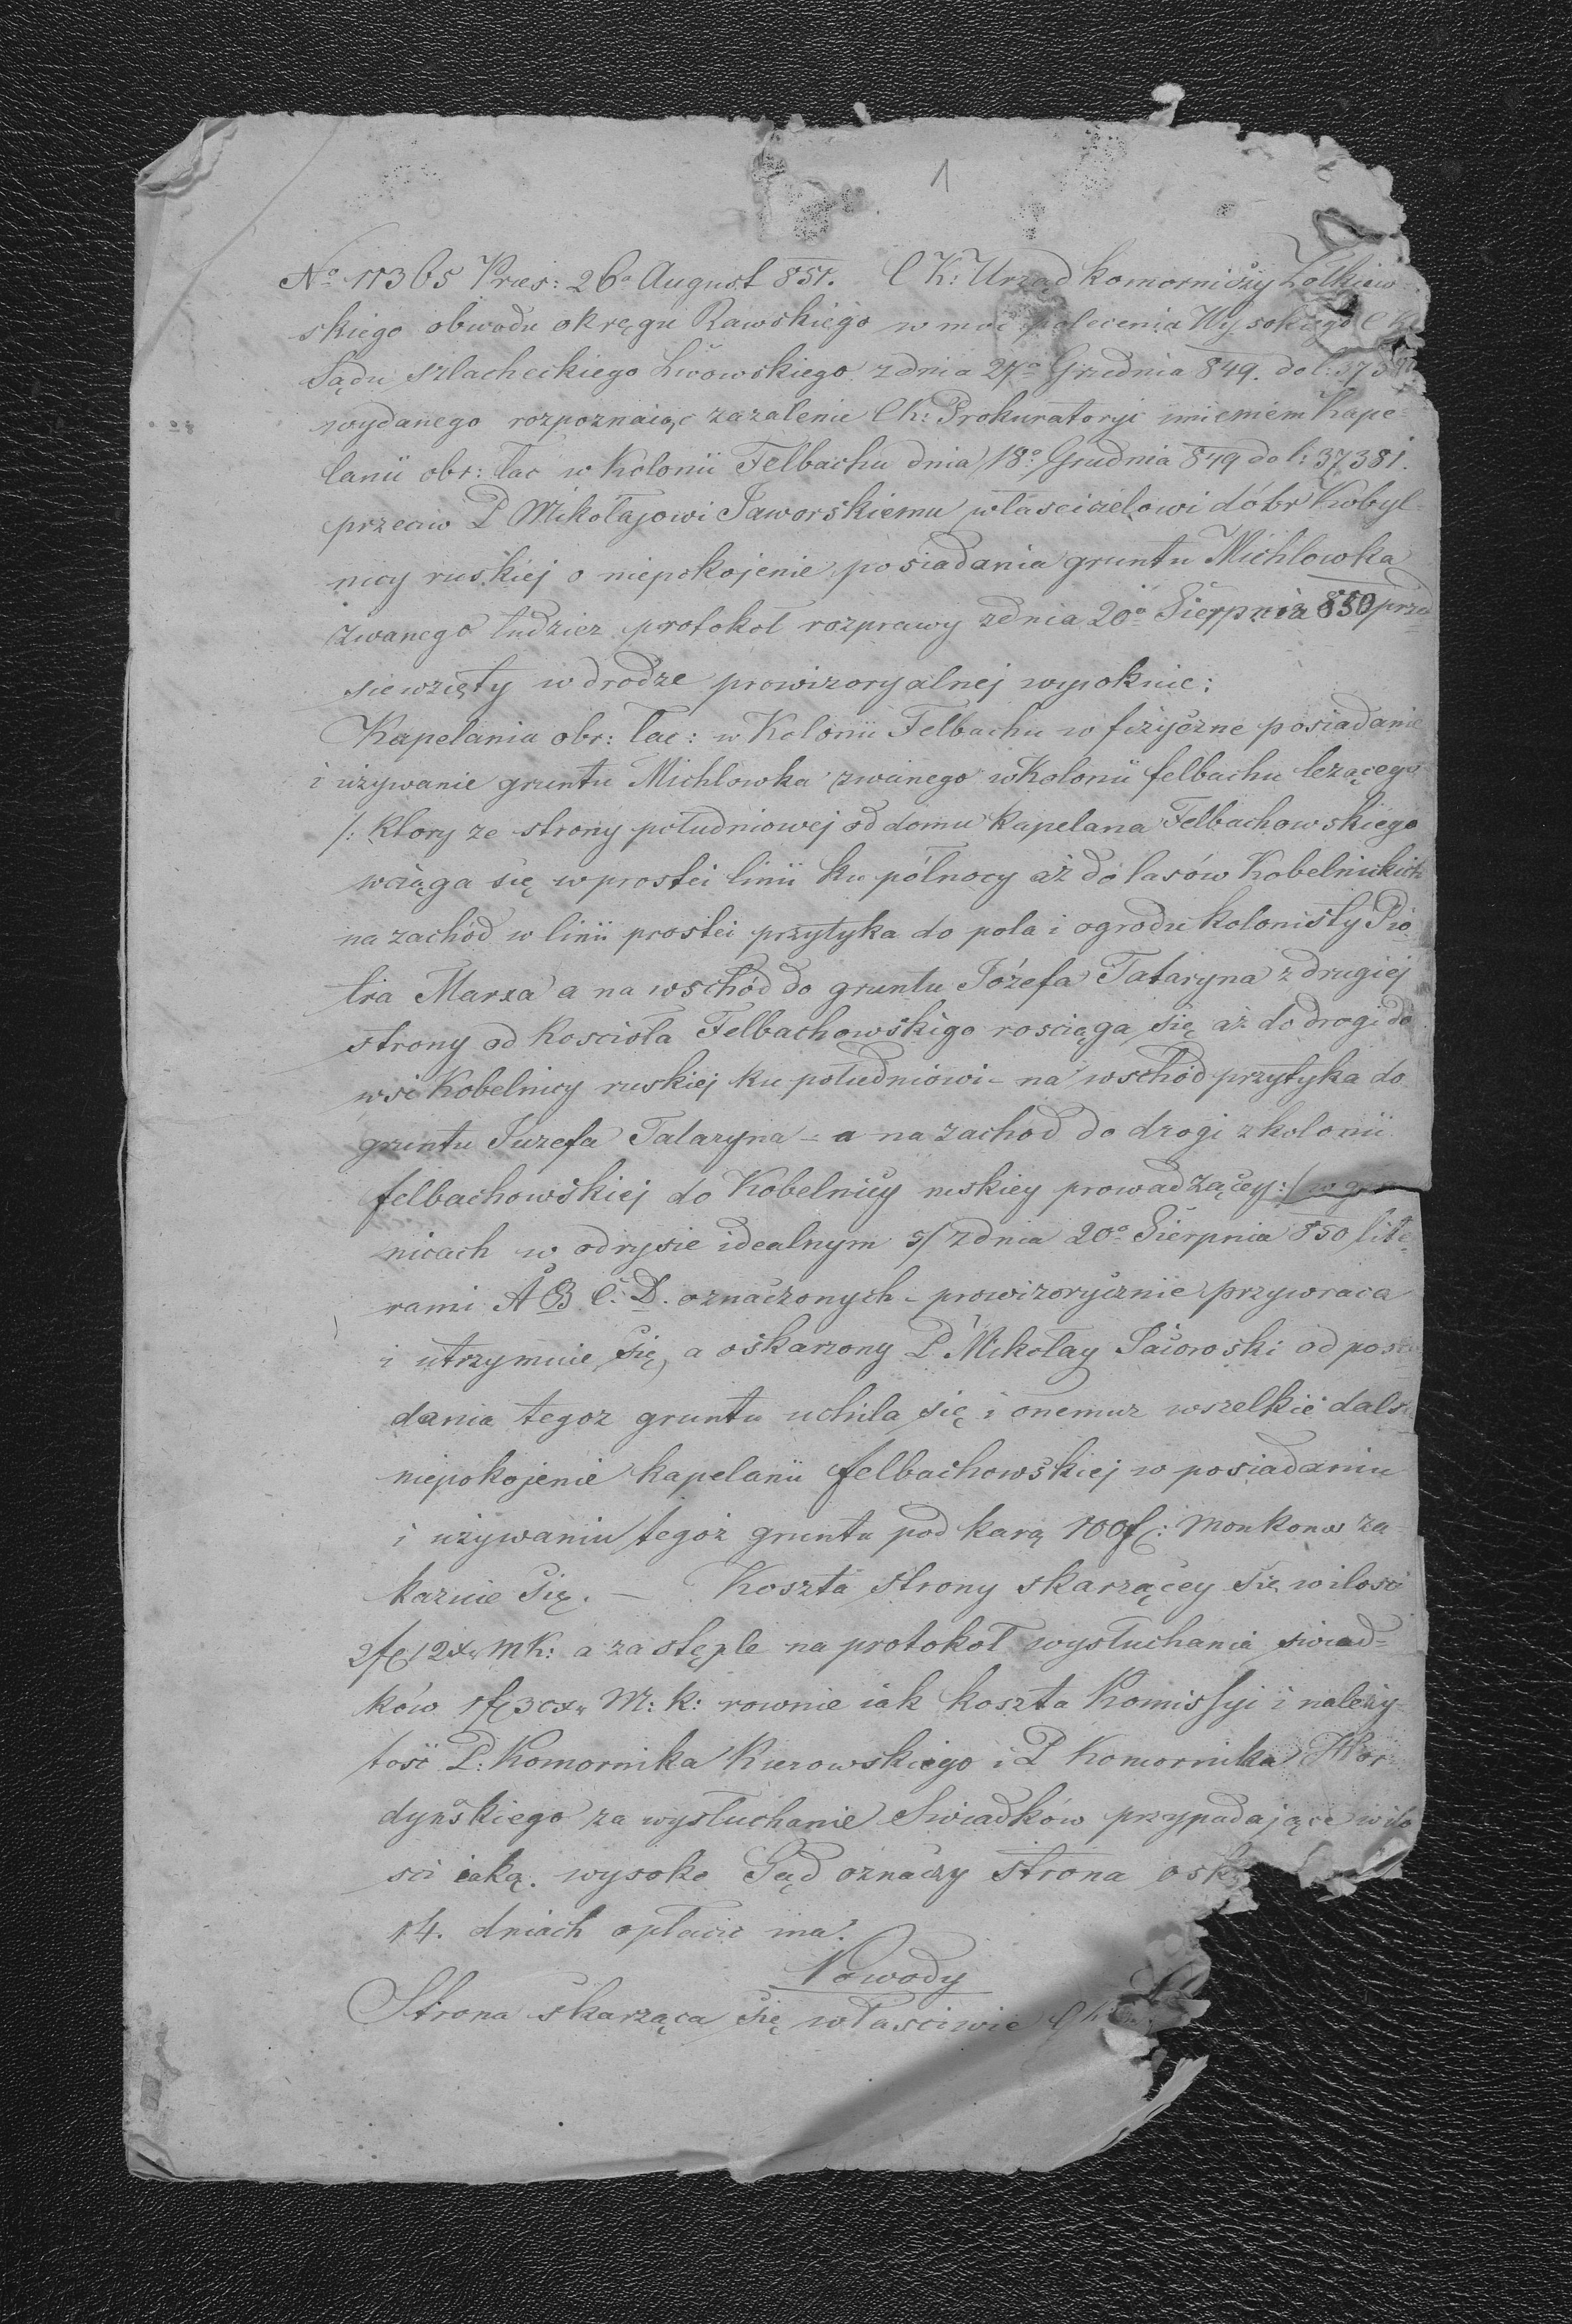 1
No 11365 Pries: 26o August 851. C K: Urząd komorniczy Zołkiew
skiego obwodu okręgu Rawskiego w moc polecenia Wysokiego C K
Sądu szlacheckiego Lwowskiego z dnia 27o Grudnia 849. do l:
wydanego rozpoznaiąc zazalenie C K: Prokuratoryi imieniem Kape-
lanii obr: łac w Kolonii Felbachu dnia 18o Grudnia 849 do l: 37381.
przeciw P Mikołajowi Jaworskiemu własicielowi dóbr Kobyl-
nicy ruskiej o niepokojenie posiadania gruntu Michlowka
zwanego tudziez protokoł rozprawy z dnia 20o Sierpnia 850 przed
siewzięty w drodze prowizoryalnej wyroknie:
Kapelania obr: łac: w Kolonii Felbachu w fizyczne posiadanie
i używanie gruntu Michlowka zwanego w Kolonii felbachu leżącego
/: ktory ze strony południowej od domu kapelana Felbachowskiego
wciąga się w prostei linii ku północy aż do lasów Kobelnickich
na zachód w linii prostei przytyka do pola i ogrodu kolonisty Pio
tra Marxa a na wschód do gruntu Józefa Tataryna z drugiej
strony od Kościoła Felbachowskigo rosciąga się aż do drogi do
wsi Kobelnicy ruskiej ku południowi - na wschód przytyka do
gruntu Juzefa Tataryna - a na zachod do drogi z kolonii
felbachowskiej do Kobelnicy ruskiey prowadzącey :/ w gra
nicach w odrysie idealnym z dnia 20o Sierpnia 850 lite-
rami A B C. D. oznaczonych - prowizorycznie przywraca
i utrzymuie się, a oskarzony P Mikołay Jaworski od posia
dania tegoz gruntu uchila się i onemuz wszelkie dalsz
niepokojenie kapelanii felbachowskiej w posiadaniu
i używaniu tegoż gruntu pod karą 100 f: Monkonw za
kazuie się. — Koszta strony skarzącey się w ilosci
2 f 12 xr MK: a za stęple na protokoł wysłuchania swiad=
ków 1 f 30 xr M: K: rownie iak koszta Komissyi i należy-
tość P: Komornika Kurowskiego i P Komornika Hor
dyńskiego za wysłuchanie Swiadków przypadające w ilo
sci iaką. wysoke Sąd oznaczy strona osk
14. dniach opłacic ma.
Powody
Strona skarząca się własciwie